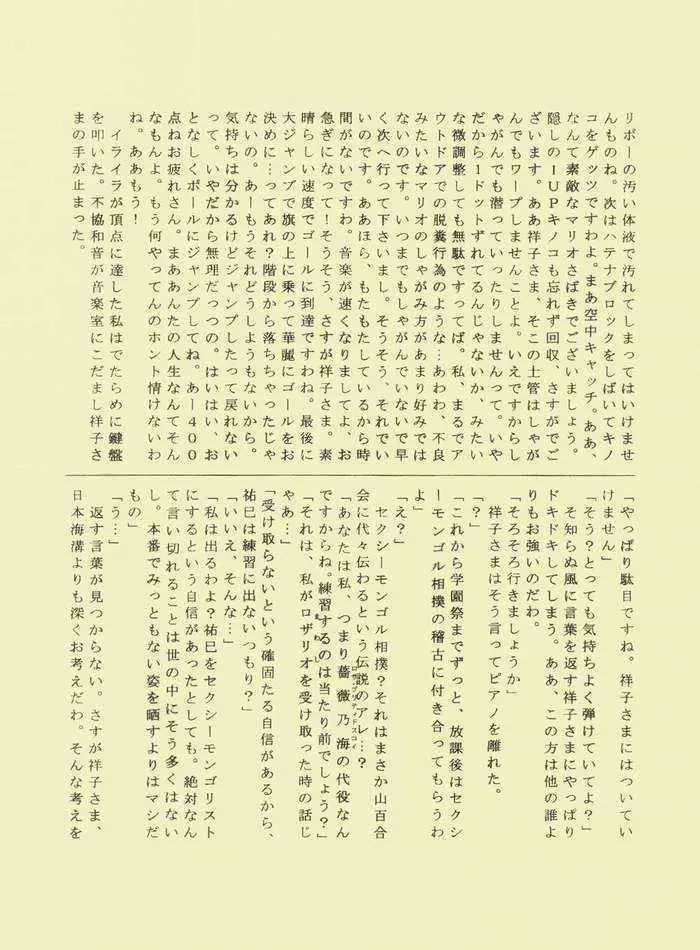 リボーの汚い体液で汚れてしまってはいけませ
んものね。次はハテナブロックをしばいてキノ
コをゲッツですわよ。まあ空中キャッチ。ああ、
なんて素敵なマリオさばきでございましょう。
隠しの1UPキノコも忘れず回収、さすがでご
ざいます。ああ祥子さま、そこの土管はしゃが
んでもワープしませんことよ。いえですからし
ゃがんでも潜っていったりしませんって。いや
だから1ドットずれてるんじゃないか、みたい
な微調整しても無駄ですってば。私、まるでア
ウトドアでの脱糞行為のような…あわわ、不良
みたいなマリオのしゃがみ方があまり好みでは
ないのです。いつまでもしゃがんでいないで早
く次へ行って下さいまし。そうそう、それでい
いのです。ああほら、もたもたしているから時
間がないですわ。音楽が速くなりましてよ、お
急ぎになって!そうそう、さすが祥子さま。素
晴らしい速度でゴールに到達ですわね。最後に
大ジャンプで旗の上に乗って華麗にゴールをお
決めに…ってあれ?階段から落ちちゃったじゃ
ないの。あーもうそれどうしようもないから。
気持ちは分かるけどジャンプしたって戻れない
って。いやだから無理だっつの。はいはい、お
となしくポールにジャンプしてね。あー400
点ねお疲れさん。まああんたの人生なんてそん
なもんよ。もう何やってんのホント情けないわ
ね。ああもう!
イライラが頂点に達した私はでたらめに鍵盤
を叩いた。不協和音が音楽室にこだまし祥子さ
まの手が止まった。
「やっぱり駄目ですね。祥子さまにはついてい
けません」
「そう?とっても気持ちよく弾けていてよ?」
そ知らぬ風に言葉を返す祥子さまにやっぱり
ドキドキしてしまう。ああ、この方は他の誰よ
りもお強いのだわ。
「そろそろ行きましょうか」
祥子さまはそう言ってピアノを離れた。
「?」
「これから学園祭までずっと、放課後はセクシ
ーモンゴル相撲の稽古に付き合ってもらうわ
よ」
「え?」
セクシーモンゴル相撲?それはまさか山百合
会に代々伝わるという伝説のアレ…?
「あなたは私、つまり薔薇乃海の代役なん
ですからね。練習するのは当たり前でしょう?」
「それは、私がロザリオを受け取った時の話じ
ゃあ…」
「受け取らないという確固たる自信があるから、
祐巳は練習に出ないつもり?」
「いいえ、そんな…」
「私は出るわよ?祐巳をセクシーモンゴリスト
にするという自信があったとしても。絶対なん
て言い切れることは世の中にそう多くはない
し。本番でみっともない姿を晒すよりはマシだ
もの」
「う…」
返す言葉が見つからない。さすが祥子さま、
日本海溝よりも深くお考えだわ。そんな考えを